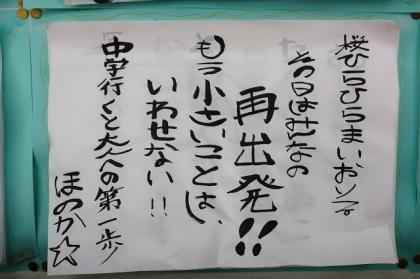 桜ひらひらまいおりる
その日はみんなの
再出発!!
もう小さいことは、
いわせない!!
中学行くと大人への第一歩!
ほのか☆